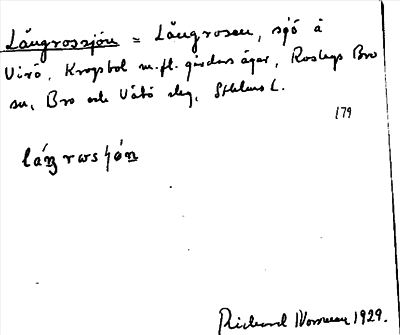 Långrossjön = Långrosen, sjö å
Virö, Krogsbol m.fl. gårdars ägor, Roslags Bro
sn, Bro och Vätö slg, Sthlms L.
179
låŋrωsʃön
Rickard 1929.